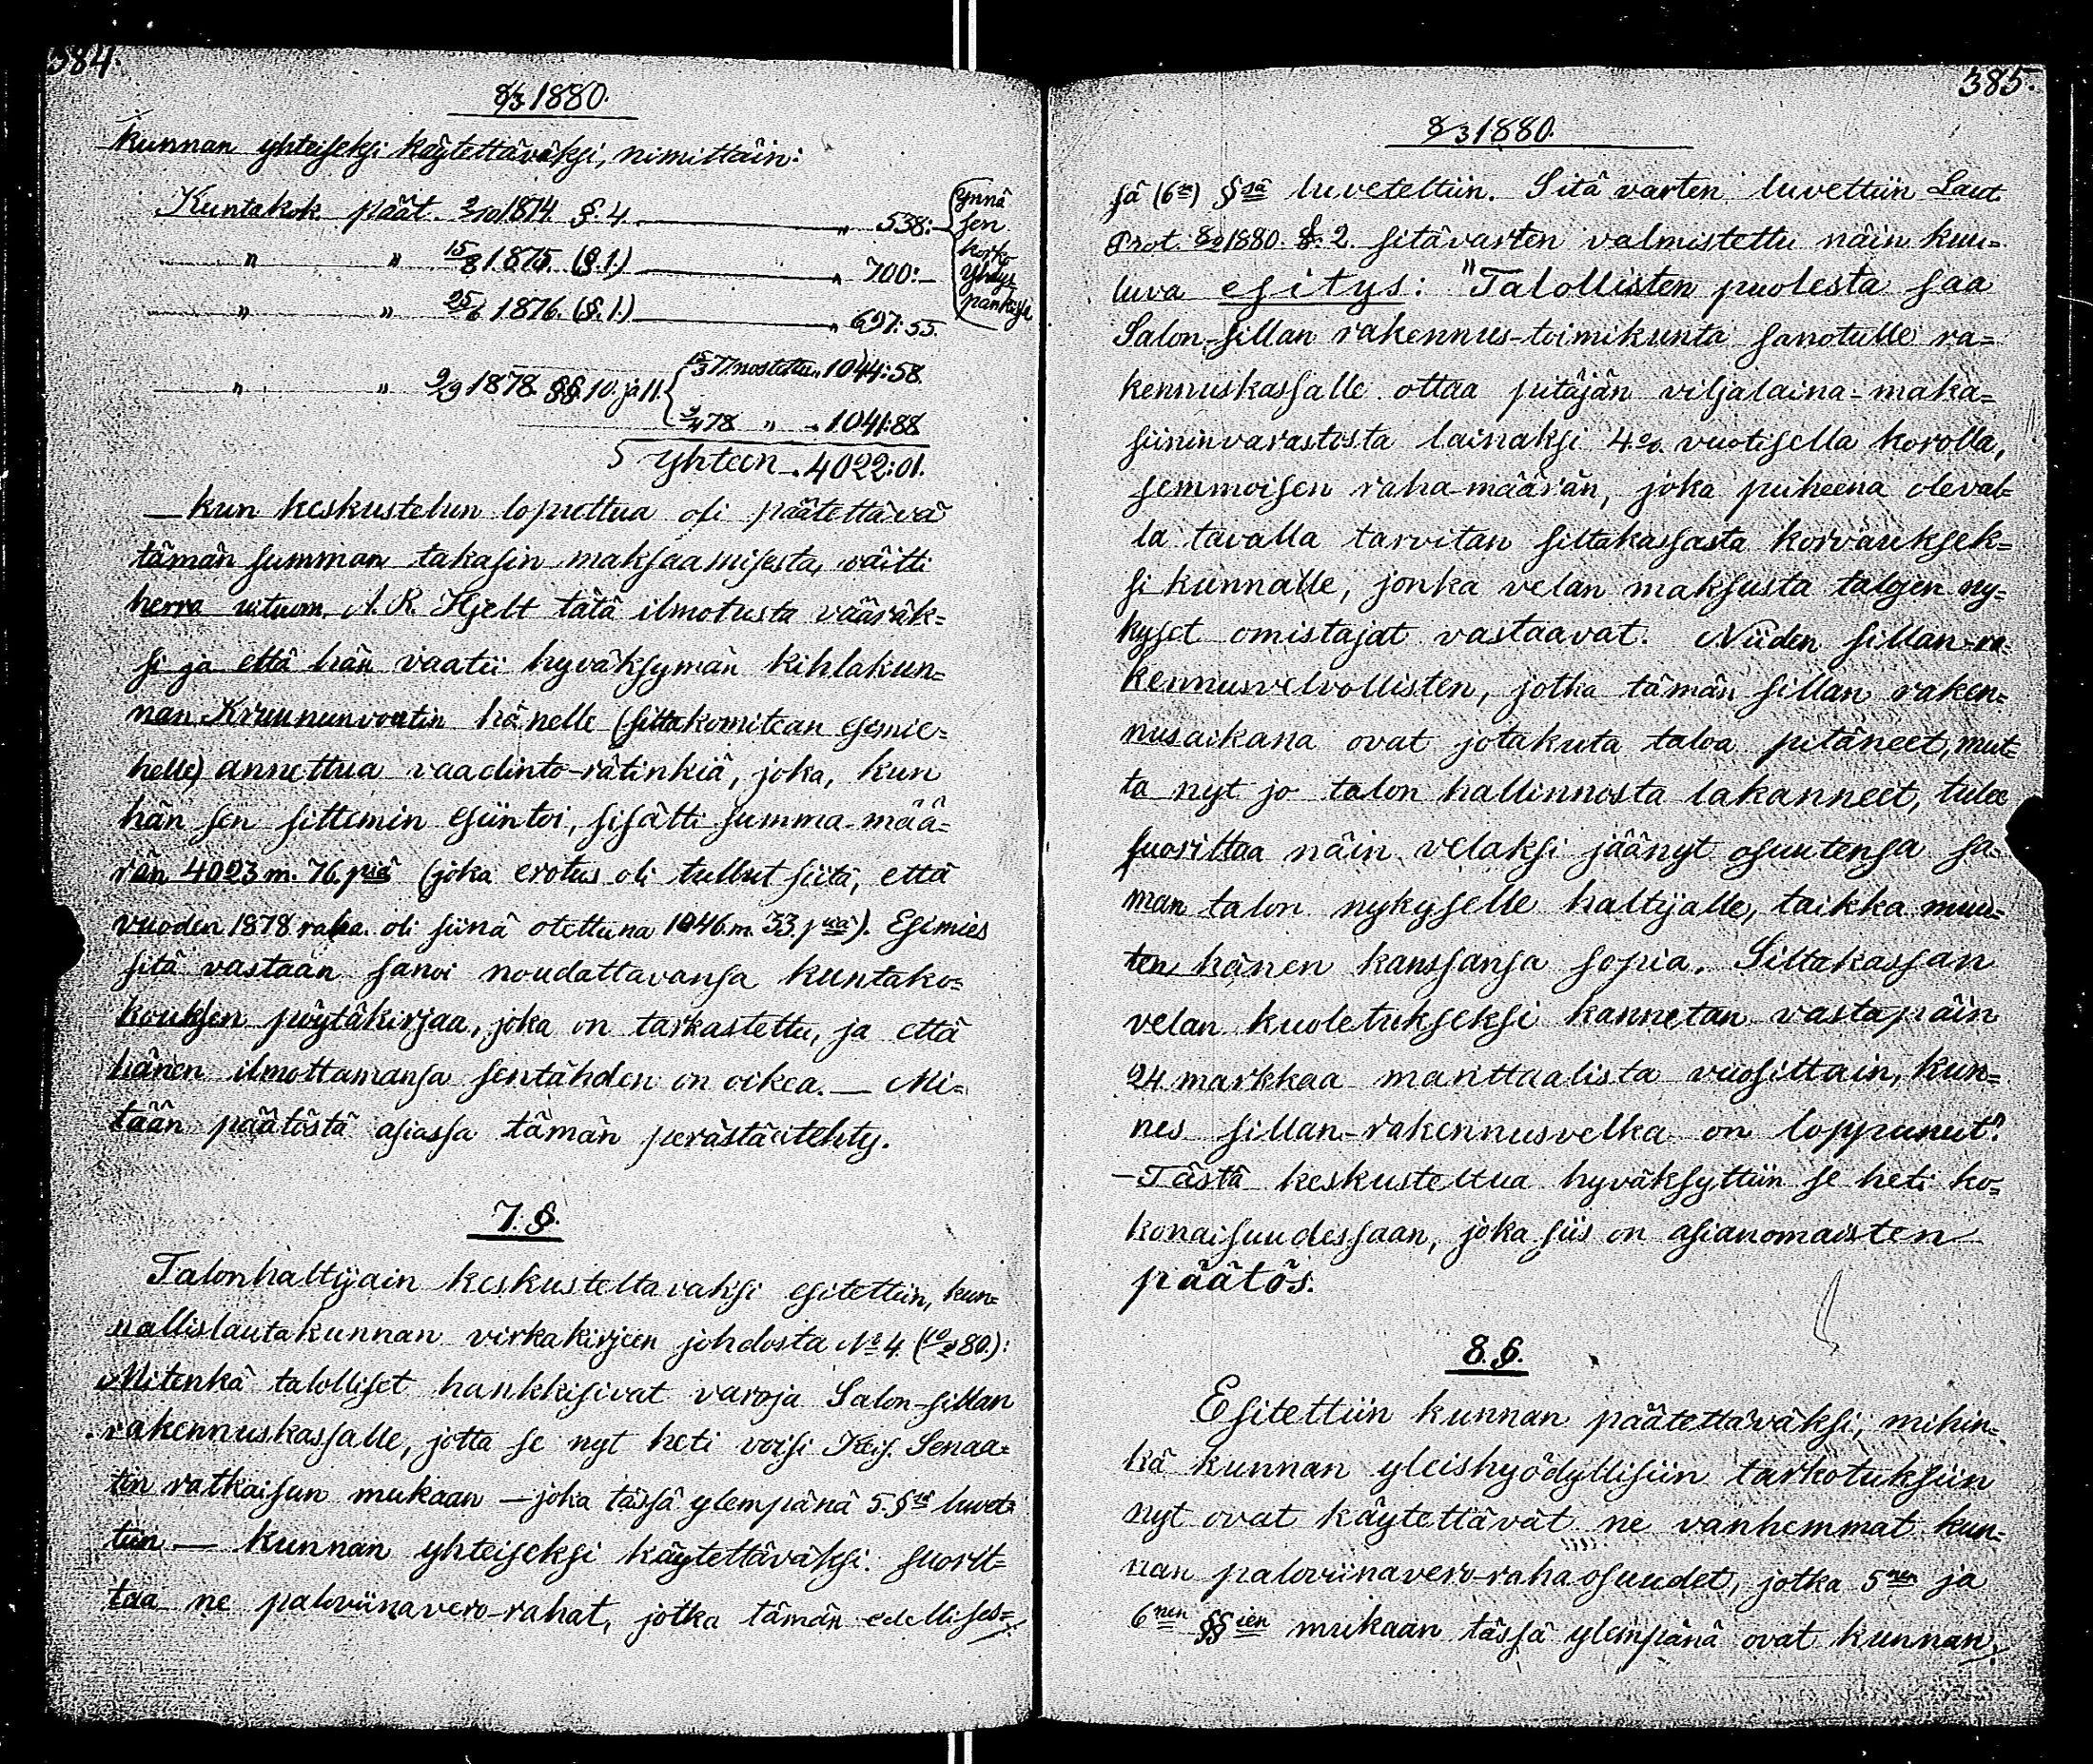 384.
8/3 1880.
kunnan yhteiseksi käytettäväksi, nimittäin:
Kuntakok. päät. 2/10 1874. §. 4. „ 538:—
ynnä
sen
korko
Yhdys
pankissa
„ „ 15/8 1875. (§.1.) „ 700:—
„ „ 25/6 1876. (§.1.) „ 697:55.
„ „ 9/9 1878. §§. 10. ja 11. 77 nostettu „ 1044:58.
78 „ „ 1041:88
Yhteen „ 4022:01.
— kun keskustelun loputtua oli päätettävä
tämän summan takasin maksaamisesta, väitti
herra A. R. Hjelt tätä ilmotusta vääräk=
si ja että hän vaatii hyväksymän kihlakun=
nan Kruununvoutin hänelle (siltakomitean esimie=
helle) annettua vaadinto-rätinkiä, joka, kun
hän sen sittemin esiintoi, sisätti summa-mää=
rän 4023 m. 76. piä (joka erotus oli tullut siitä, että
vuoden 1878 raha. oli siinä otettuna 1046. m. 33. piä). Esimies
sitä vastaan sanoi noudattavansa kuntako=
kouksen pöytäkirjaa, joka on tarkastettu, ja että
hänen ilmottamansa sentähden on oikea. — Mi=
tään päätöstä asiassa tämän perästä ei tehty.
7. §.
Talonhaltijain keskusteltavaksi esitettiin, kun=
nallislautakunnan virkakirjeen johdosta No 4. (10/2 80.):
Mitenkä talolliset hankkisivat varoja Salon-sillan
rakennuskassalle, jotta se nyt heti voisi Keis. Senaa=
tin ratkaisun mukaan — joka tässä ylempänä 5. §sä luvet=
tiin — kunnan yhteiseksi käytettäväksi suorit=
taa ne paloviinavero-rahat, jotka tämän edellises=
385.
8/3 1880.
sä (6ssa) §ssä luveteltiin. Sitä varten luvettiin Laut.
Prot. 8/2 1880. §. 2. sitävarten valmistettu näin kuu=
luva esitys: "Talollisten puolesta saa
Salon-sillan rakennus-toimikunta sanotulle ra=
kennuskassalle ottaa pitäjän viljalaina-maka=
siininvarastosta lainaksi 4.%. vuotisella korolla,
semmoisen raha-määrän, joka puheena oleval=
la tavalla tarvitan siltakassasta korvaukseek=
si kunnalle, jonka velan maksusta talojen ny=
kyset omistajat vastaavat. Niiden sillan-ra=
kennusvelvollisten, jotka tämän sillan raken=
nusaikana ovat jotakuta taloa pitäneet, mut=
ta nyt jo talon hallinnosta lakanneet, tulee
suorittaa näin velaksi jäänyt osuutensa sa=
man talon nykyselle haltijalle, taikka muu=
ten hänen kanssansa sopia. Siltakassan
velan kuoletukseksi kannetan vastapäin
24 markkaa manttaalista vuosittain, kun=
nes sillan-rakennusvelka on loppunut".
— Tästä keskusteltua hyväksyttiin se heti ko=
konaisuudessaan, joka siis on asianomaisten
päätös.
8. §.
Esitettiin kunnan päätettäväksi; mihin=
kä kunnan yleishyödyllisiin tarkotuksiin
nyt ovat käytettävät ne vanhemmat kun=
nan paloviinavero-rahaosuudet, jotka 5nen ja
6nen §§ien mukaan tässä ylempänä ovat kunnan